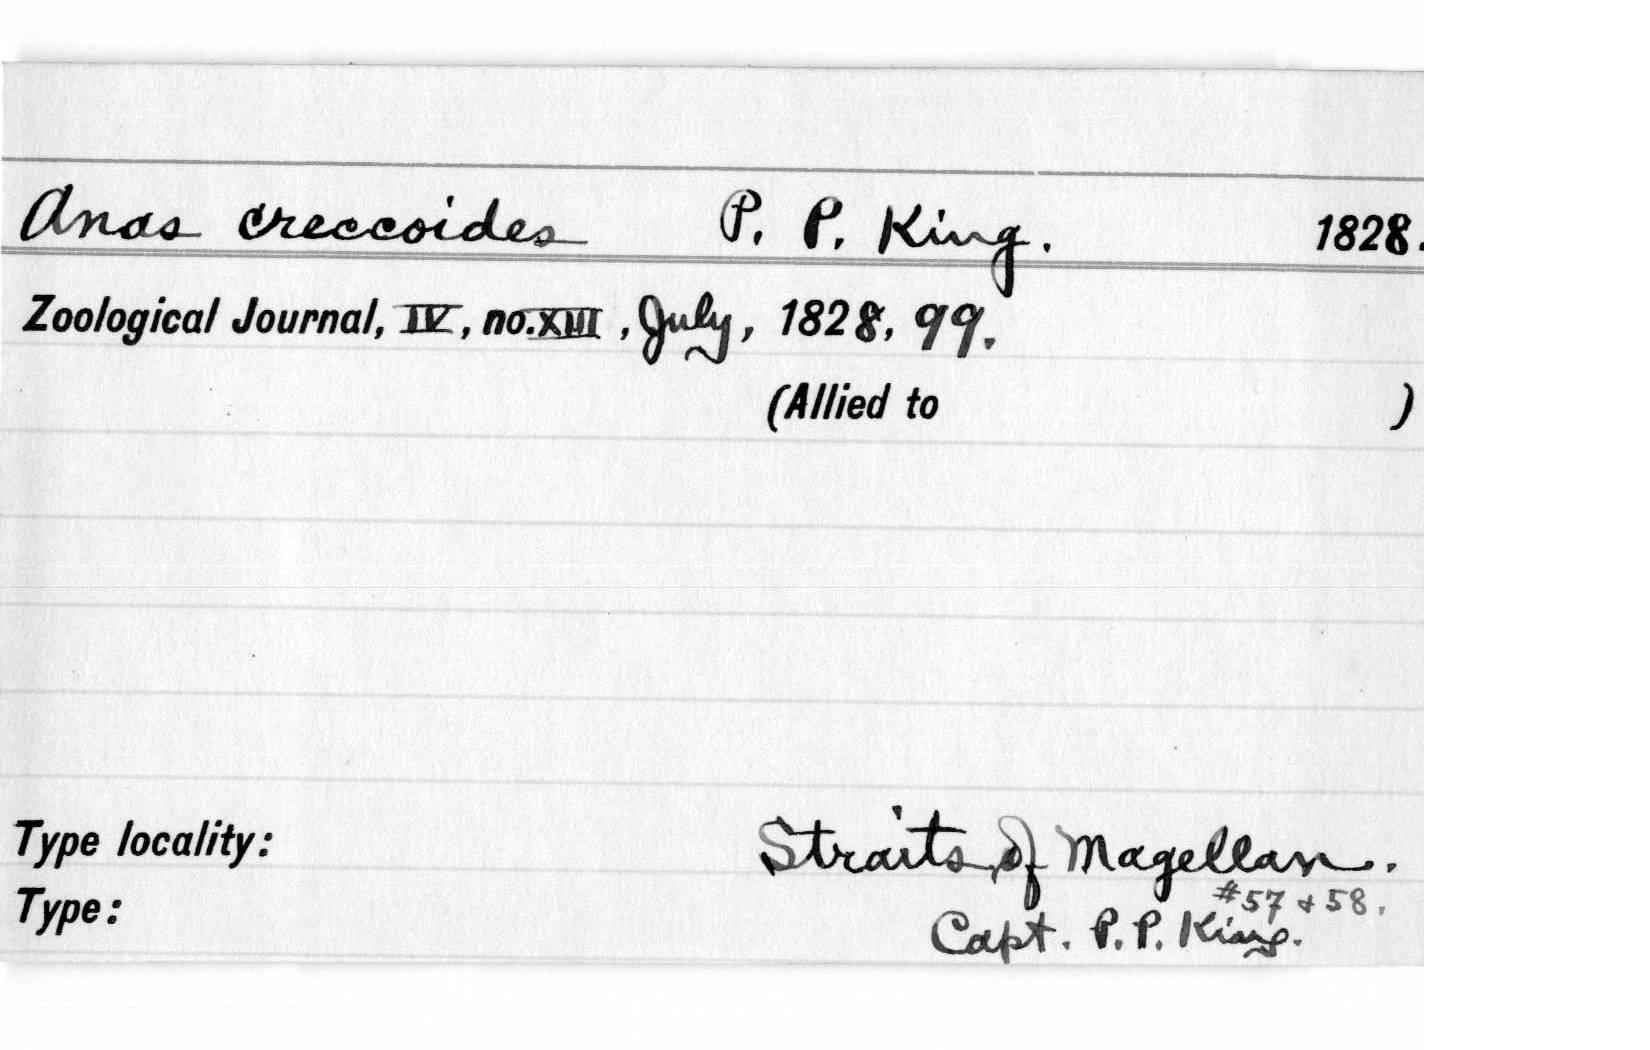 Anas creccoides P. P. King. 1828.
Zoological Journal, IV, no. XIII, July, 1828, 99.
(Allied to )
Type locality: Straits of Magellan.
#57 + 58.
Type: Capt. P. P. King.